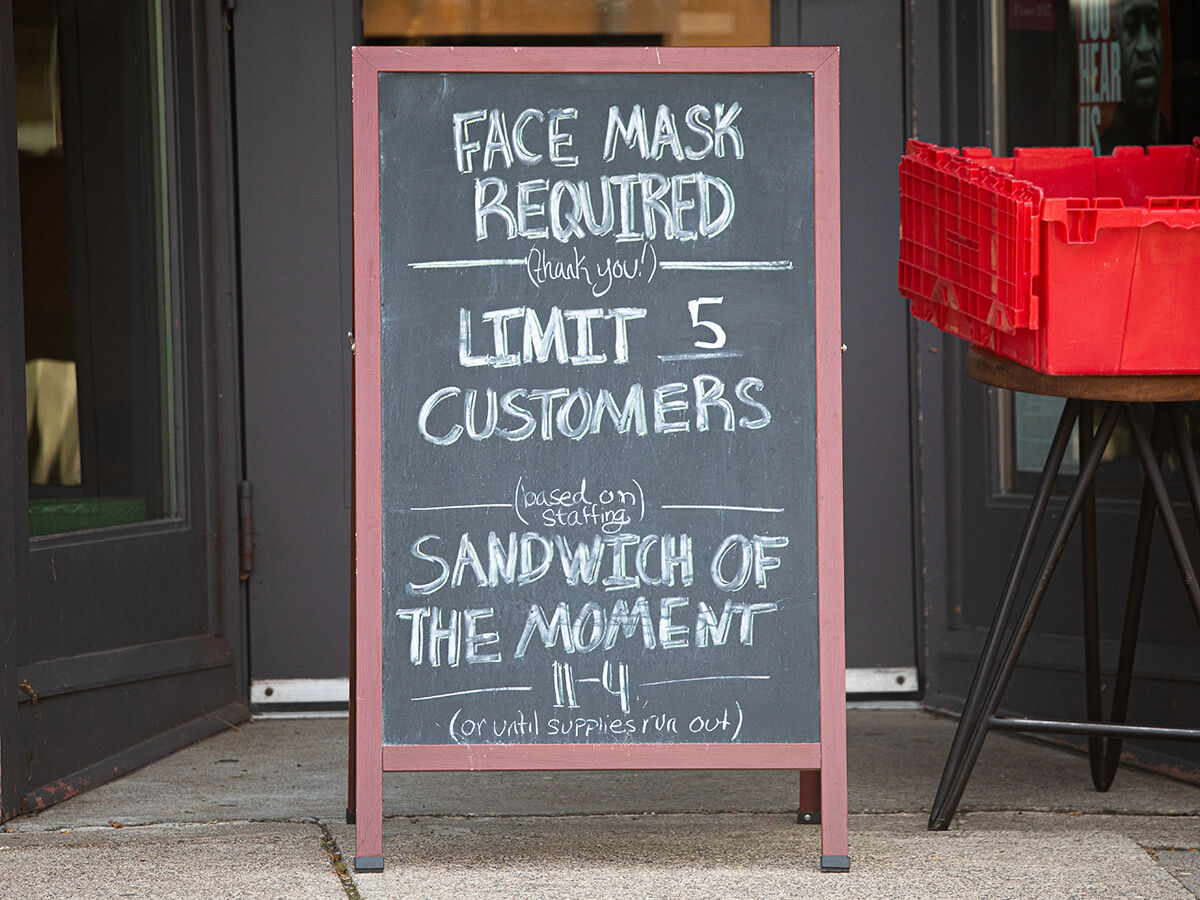 FACE MASK
REQUIRED
(thank you!)
LIMIT 5
CUSTOMERS
(based on
staffing)
SANDWICH OF
THE MOMENT
11-4
(or until supplies run out)
YOU
HEAR
US